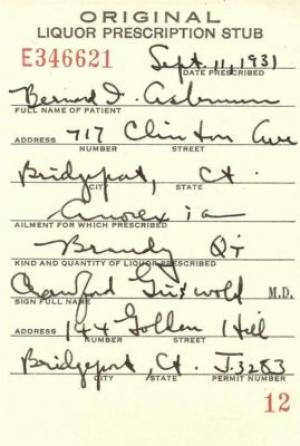 ORIGINAL
LIQUOR PRESCRIPTION STUB
E346621 Sept. 11, 1931
DATE PRESCRIBED
Bernard I.
FULL NAME OF PATIENT
ADDRESS 717 Clinton Ave
NUMBER STREET
Bridgeport, Ct.
CITY STATE
Anorexia
AILMENT FOR WHICH PRESCRIBED
Brandy Qt
KIND AND QUANTITY OF LIQUOR PRESCRIBED
Crawford Griswold M.D.
SIGN FULL NAME
ADDRESS 144 Golden Hill
NUMBER STREET
Bridgeport, Ct. J.3283
CITY STATE PERMIT NUMBER
12